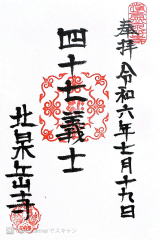 奉拝
令和六年七月十九日
四十七義士
北泉岳寺